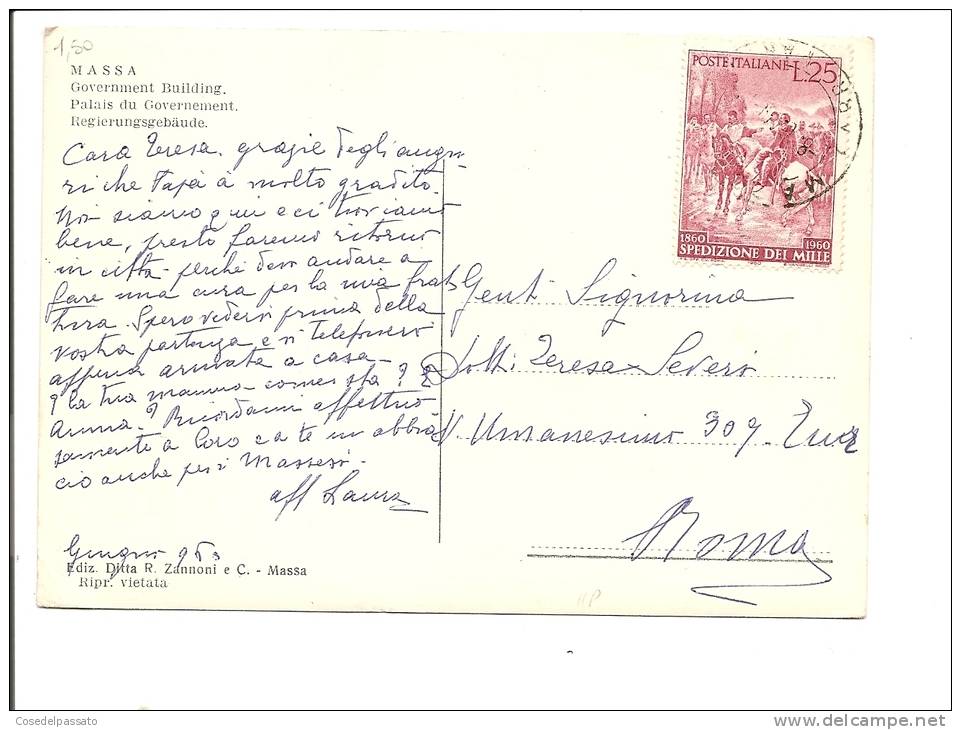 1,50
MASSA
Government Building.
Palais du Governement.
Regierungsgebäude.
Cara Teresa. grazie degli augu-
ri che Papà à molto gradito.
Noi siamo qui e ci troviamo
bene, presto faremo ritorno
in città perché devo andare a
fare una cura per la mia frat
tura. Spero vedervi prima della
vostra partenza e vi telefonerò
appena arrivata a casa -
? la tua mamma come sta? E
Anna? Ricordami affettuo
samente a loro e a te un abbrac
cio anche per i Massesi.
aff Laura
Giugno 960
Ediz. Ditta R. Zannoni e C. - Massa
Ripr. vietata
POSTE ITALIANE L.25
1860 1960
SPEDIZIONE DEI MILLE
Gent. Signorina
Dott. Teresa Severi
V. Umanesimo 309. Eur
Roma
Cosedelpassato
www.delcampe.net